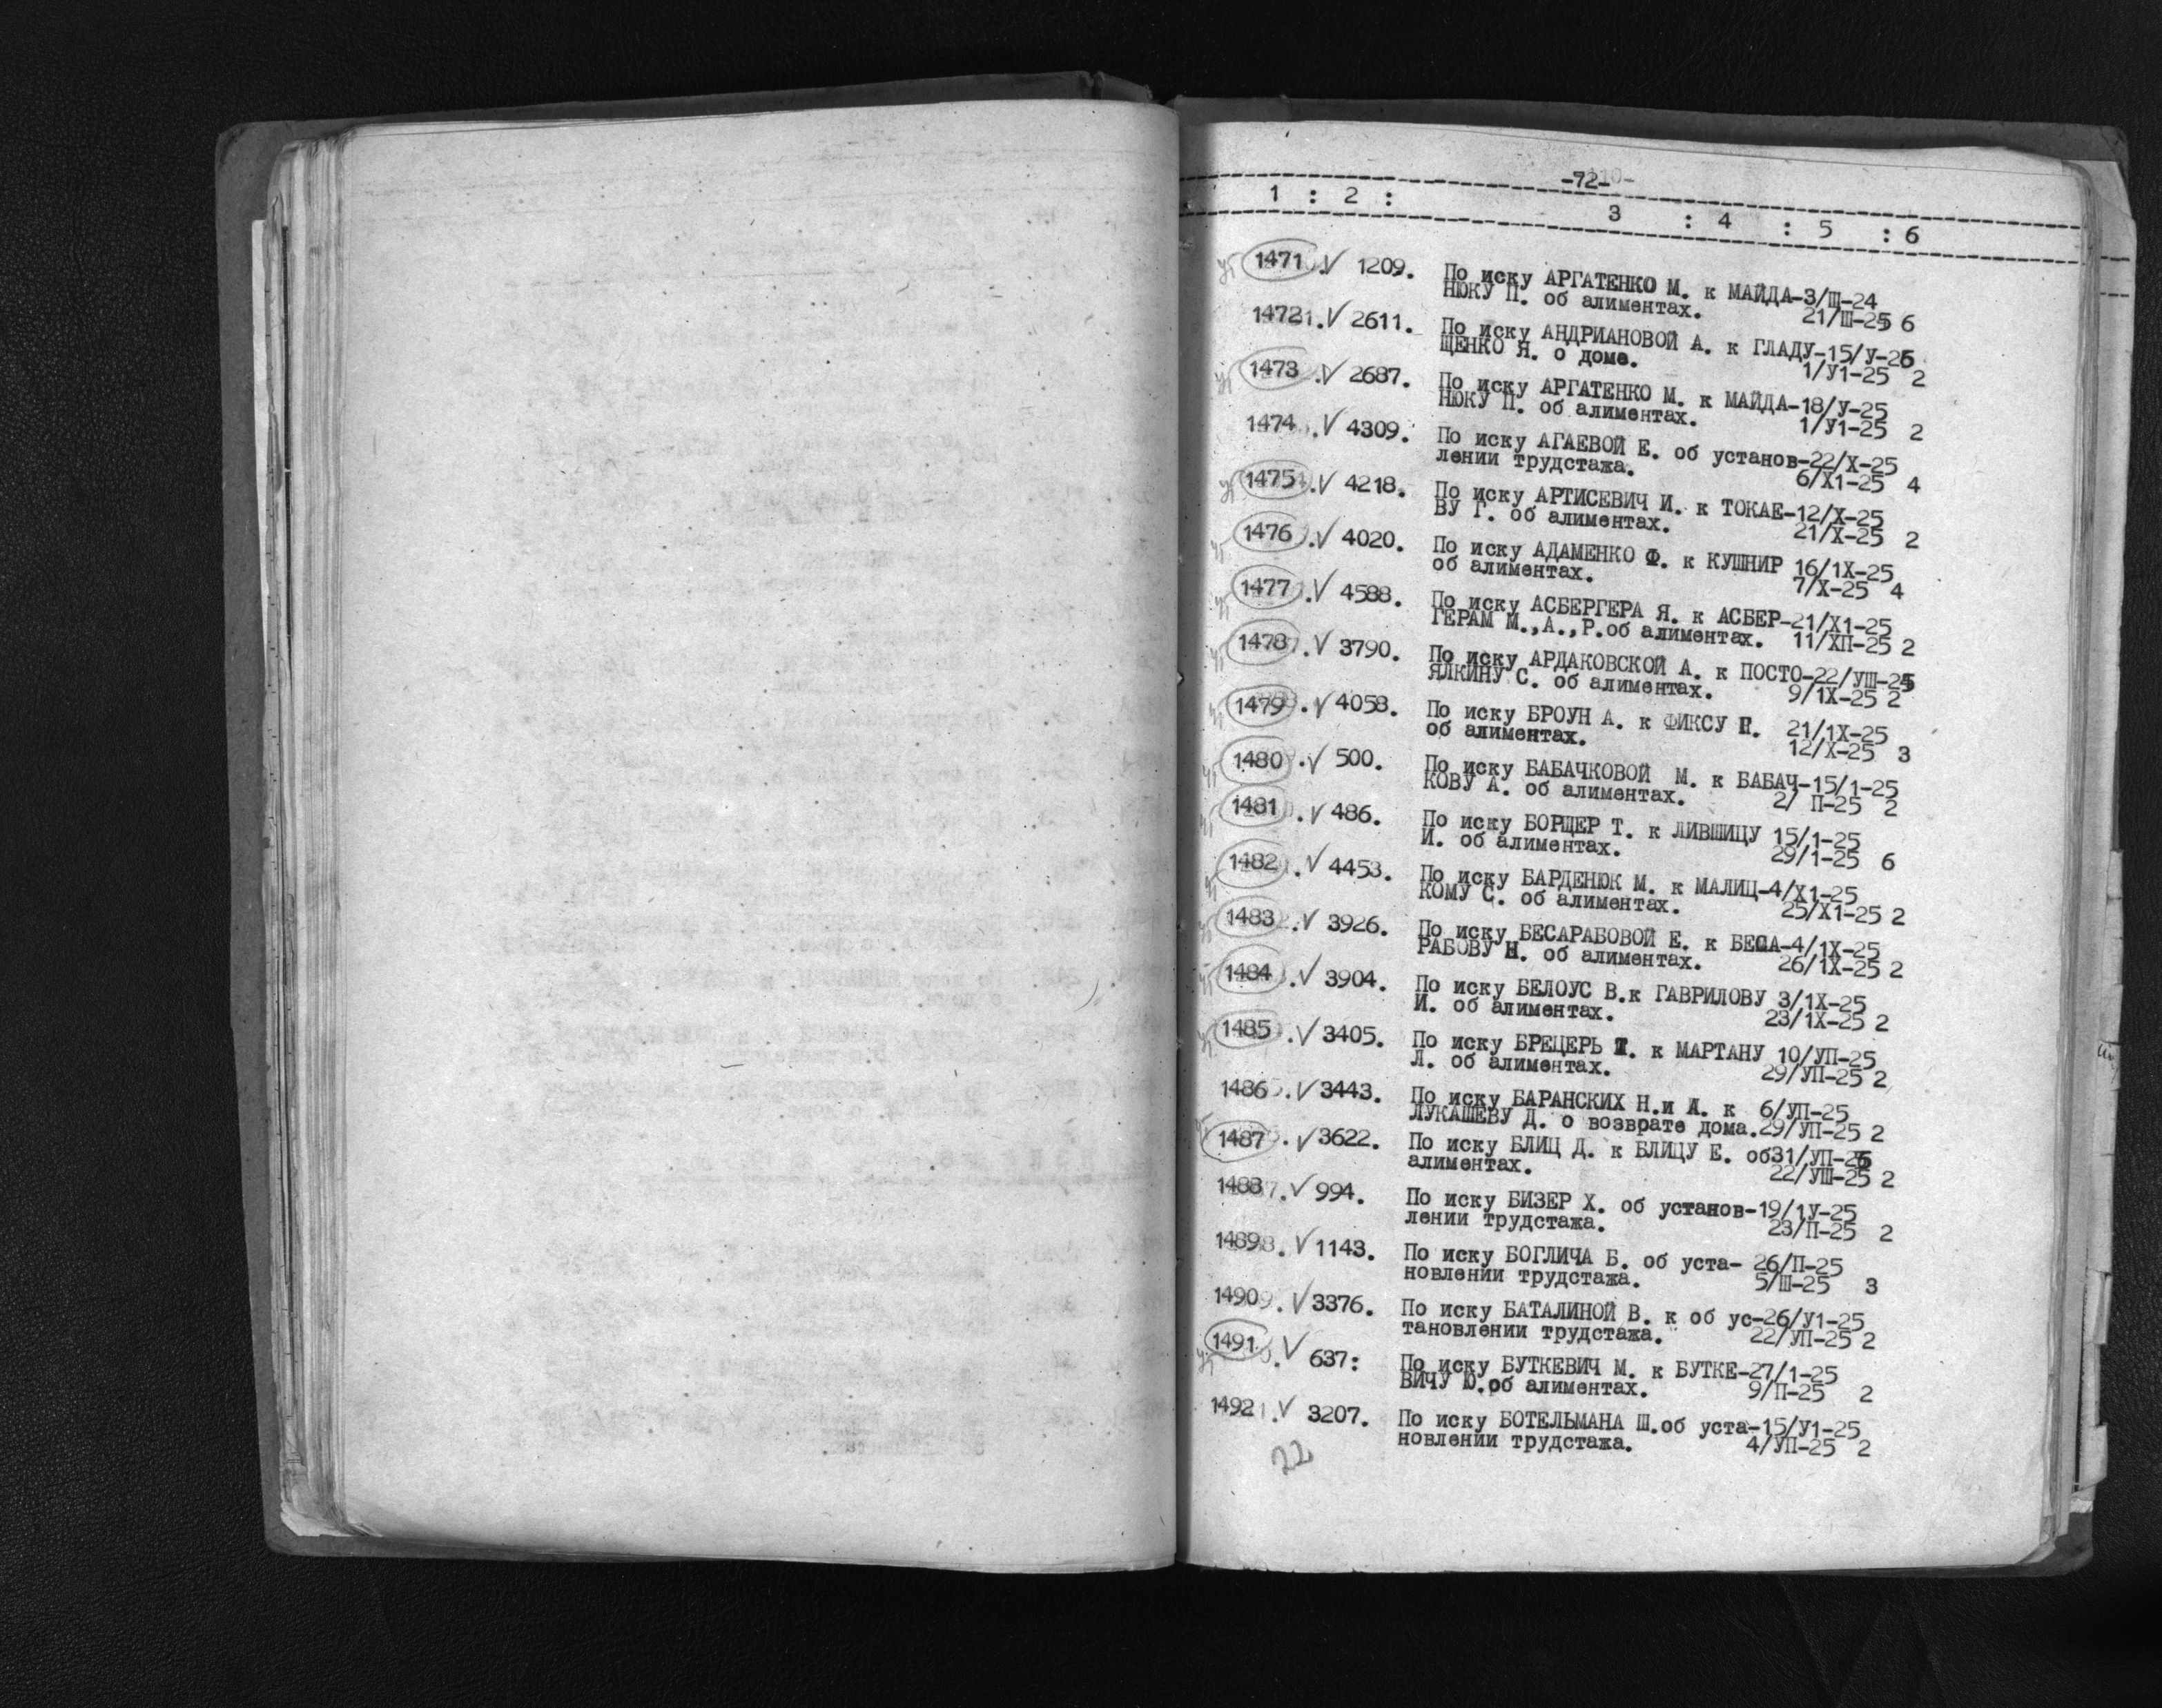 -72-
1 : 2 : 3 : 4 : 5 : 6
1471. V 1209. По иску АРГАТЕНКО М. к МАЙДА-3/Ш-24
НЮКУ П. об алиментах. 21/Ш-25 6
1472. V 2611. По иску АНДРИАНОВОЙ А. к ГЛАДУ-15/У-25
ЩЕНКО Я. о доме. 1/У1-25 2
1473. V 2687. По иску АРГАТЕНКО М. к МАЙДА-18/У-25
НЮКУ П. об алиментах. 1/У1-25 2
1474. V 4309. По иску АГАЕВОЙ Е. об установ-22/Х-25
лении трудстажа. 6/Х1-25 4
1475. V 4218. По иску АРТИСЕВИЧ И. к ТОКАЕ-12/Х-25
ВУ Г. об алиментах. 21/Х-25 2
1476. V 4020. По иску АДАМЕНКО Ф. к КУШНИР 16/1Х-25
об алиментах. 7/Х-25 4
1477. V 4588. По иску АСБЕРГЕРА Я. к АСБЕР-21/Х1-25
ГЕРАМ М.,А.,Р.об алиментах. 11/ХП-25 2
1478. V 3790. По иску АРДАКОВСКОЙ А. к ПОСТО-22/УШ-25
ЯЛКИНУ С. об алиментах. 9/1Х-25 2
1479. V 4058. По иску БРОУН А. к ФИКСУ Н. 21/1Х-25
об алиментах. 12/Х-25 3
1480. V 500. По иску БАБАЧКОВОЙ М. к БАБАЧ-15/1-25
КОВУ А. об алиментах. 2/ П-25 2
1481. V 486. По иску БОРЩЕР Т. к ЛИВШИЦУ 15/1-25
И. об алиментах. 29/1-25 6
1482. V 4453. По иску БАРДЕНЮК М. к МАЛИЦ-4/Х1-25
КОМУ С. об алиментах. 25/Х1-25 2
1483. V 3926. По иску БЕСАРАБОВОЙ Е. к БЕСА-4/1Х-25
РАБОВУ Н. об алиментах. 26/1Х-25 2
1484. V 3904. По иску БЕЛОУС В.к ГАВРИЛОВУ 3/1Х-25
И. об алиментах. 23/1Х-25 2
1485. V 3405. По иску БРЕЦЕРЬ к МАРТАНУ 10/УП-25
Л. об алиментах. 29/УП-25 2
1486. V 3443. По иску БАРАНСКИХ Н.и А. к 6/УП-25
ЛУКАШЕВУ Д. о возврате дома.29/УП-25 2
1487. V 3622. По иску БЛИЦ Д. к БЛИЦУ Е. об31/УП-25
алиментах. 22/УШ-25 2
1488. V 994. По иску БИЗЕР Х. об установ-19/1У-25
лении трудстажа. 23/П-25 2
1489. V 1143. По иску БОГЛИЧА Б. об уста- 26/П-25
новлении трудстажа. 5/Ш-25 3
1490. V 3376. По иску БАТАЛИНОЙ В. к об ус-26/У1-25
тановлении трудстажа. 22/УП-25 2
1491. V 637: По иску БУТКЕВИЧ М. к БУТКЕ-27/1-25
ВИЧУ Ю.об алиментах. 9/П-25 2
1492. V 3207. По иску БОТЕЛЬМАНА Ш.об уста-15/У1-25
новлении трудстажа. 4/УП-25 2
22